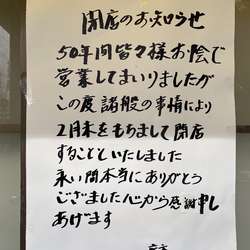 閉店のお知らせ
50年間皆々様お陰で
営業してまいりましたが
この度諸般の事情により
2月末をもちまして閉店
することといたしました
永い間本当にありがとう
ございました心から感謝申し
あげます